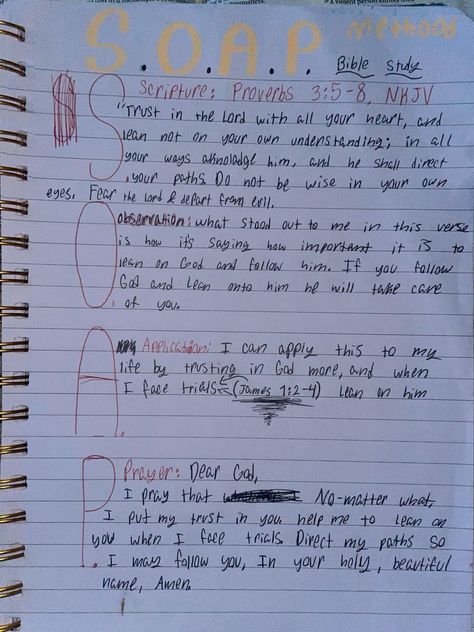 S.O.A.P. method
Bible Study
Scripture: Proverbs 3:5-8, NKJV
S "Trust in the Lord with all your heart, and
lean not on your own understanding; in all
your ways aknoladge him, and he shall direct
your paths. Do not be wise in your own
eyes. Fear the lord & depart from evil.
O observation: what stood out to me in this verse
is how it's saying how important it is to
lean on God and follow him. If you follow
God and lean onto him he will take care
of you.
A. Application: I can apply this to my
life by trusting in God more, and when
I face trials (James 1:2-4) lean on him
P. Prayer: Dear God,
I pray that No-matter what,
I put my trust in you, help me to lean on
you when I face trials. Direct my paths so
I may follow you, In your holy, beautiful
name, Amen.